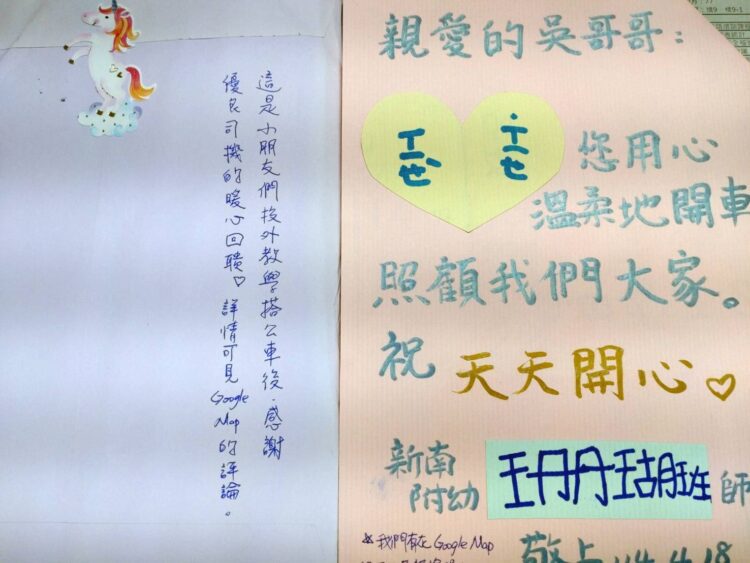 這是小朋友們校外教學搭公車後，感謝
優良司機的暖心回饋♡ 詳情可見Google Map的評論。
親愛的吳哥哥：
您用心
溫柔地開車
照顧我們大家。
祝 天天開心♡
新南
附幼 珊瑚班 師
☆我們有在 Google Map
敬上 114.4.18